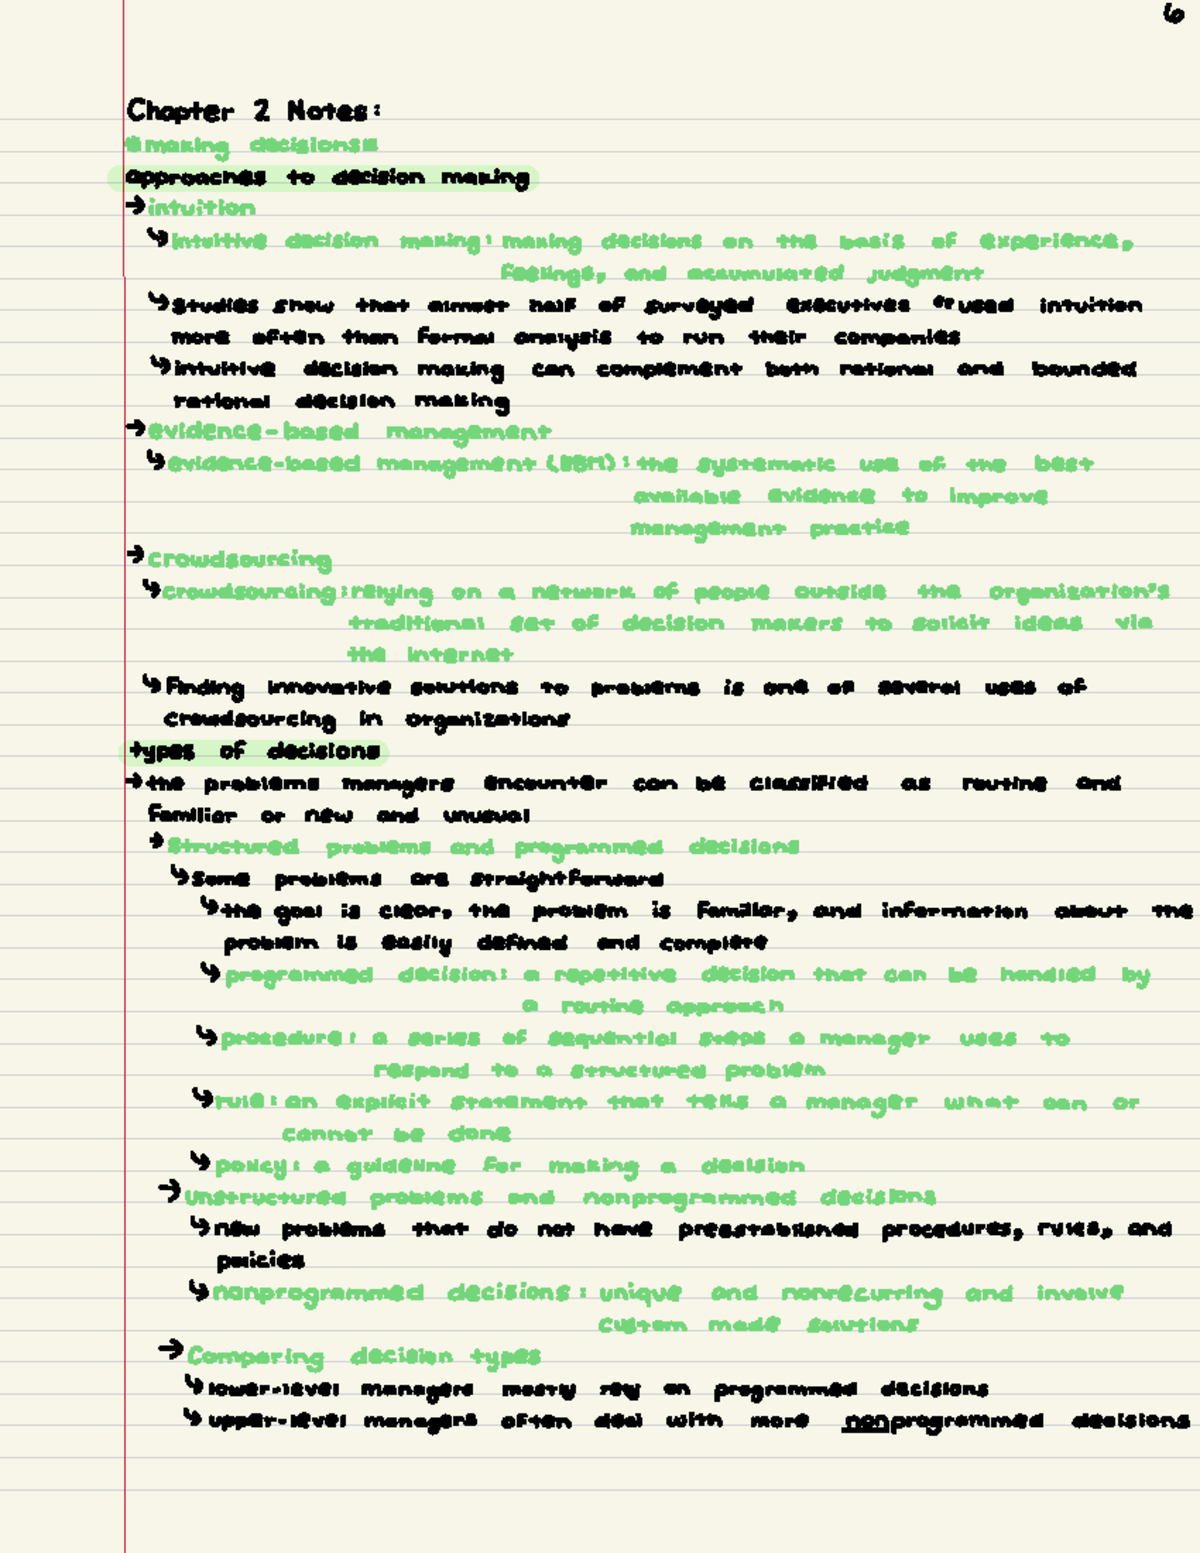 6
Chapter 2 Notes:
*making decisions*
approaches to decision making
→ intuition
↳ intuitive decision making: making decisions on the basis of experience,
feelings, and accumulated judgment
↳ studies show that almost half of surveyed executives used intuition
more often than formal analysis to run their companies
↳ intuitive decision making can complement both rational and bounded
rational decision making
→ evidence-based management
↳ evidence-based management (EBM): the systematic use of the best
available evidence to improve
management practice
→ crowdsourcing
↳ crowdsourcing: relying on a network of people outside the organization's
traditional set of decision makers to solicit ideas via
the internet
↳ Finding innovative solutions to problems is one of several uses of
crowdsourcing in organizations
types of decisions
→ the problems managers encounter can be classified as routine and
familiar or new and unusual
→ Structured problems and programmed decisions
↳ some problems are straightforward
↳ the goal is clear, the problem is familiar, and information about the
problem is easily defined and complete
↳ programmed decision: a repetitive decision that can be handled by
a routine approach
↳ procedure: a series of sequential steps a manager uses to
respond to a structured problem
↳ rule: an explicit statement that tells a manager what can or
cannot be done
↳ policy: a guideline for making a decision
→ Unstructured problems and nonprogrammed decisions
↳ new problems that do not have preestablished procedures, rules, and
policies
↳ nonprogrammed decisions: unique and nonrecurring and involve
custom made solutions
→ Comparing decision types
↳ lower-level managers mostly rely on programmed decisions
↳ upper-level managers often deal with more nonprogrammed decisions